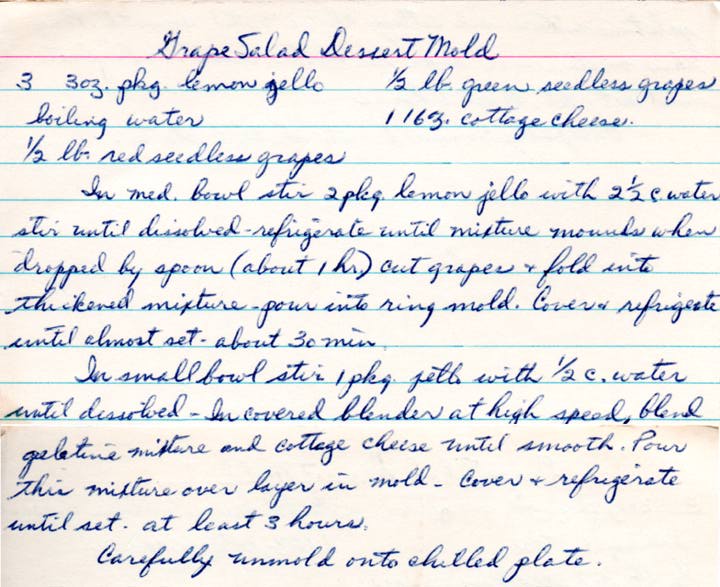 Grape Salad Dessert Mold
3 3oz. pkg. lemon jello ½ lb. green seedless grapes
boiling water 1 16oz. cottage cheese.
½ lb. red seedless grapes
In med. bowl stir 2 pkg. lemon jello with 2½ c. water
stir until dissolved - refrigerate until mixture mounds when
dropped by spoon (about 1 hr.) cut grapes + fold into
thickened mixture - pour into ring mold. Cover + refrigerate
until almost set - about 30 min.
In small bowl stir 1 pkg. jello with ½ c. water
until dissolved - In covered blender at high speed, blend
gelatine mixture and cottage cheese until smooth. Pour
this mixture over layer in mold - Cover + refrigerate
until set. at least 3 hours.
Carefully unmold onto chilled plate.